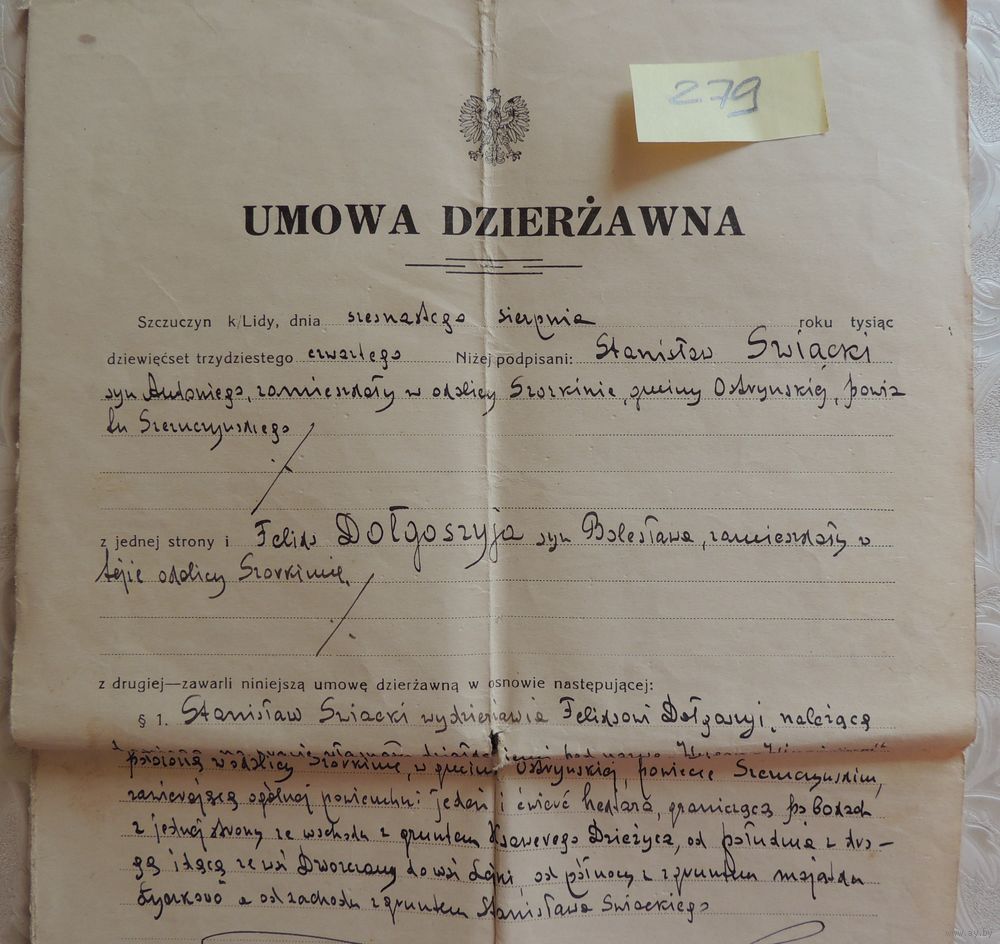 279
UMOWA DZIERŻAWNA
Szczuczyn k/Lidy, dnia szesnastego sierpnia roku tysiąc
dziewięćset trzydziestego czwartego Niżej podpisani: Stanisław Swiącki
syn Antoniego, zamieszkały w okolicy Szorkinie, gminy Ostryńskiéj, powia
tu Szczuczyńskiego
z jednej strony i Feliks Dołgoszyja syn Bolesława, zamieszkały w
tejże okolicy Szorkinie,
z drugiej—zawarli niniejszą umowę dzierżawną w osnowie następującej:
§ 1. Stanisław Swiacki wydzierżawia Feliksowi Dołgoszyi, należącą
położoną w okolicy Szorkinie, w gminie Ostryńskiéj, powiecie Szczuczyńskim,
zawierającą ogólnej powierzchni jeden i ćwierć hektara, graniczącą po bokach
z jednej strony ze wschodu z gruntem Ksawerego Dzieżyca, od południa z dro-
gą idącą ze wsi Dworczany do wsi, od północy z gruntem majątku
a od zachodu z gruntem Stanisława Swiackiego
www.ay.by